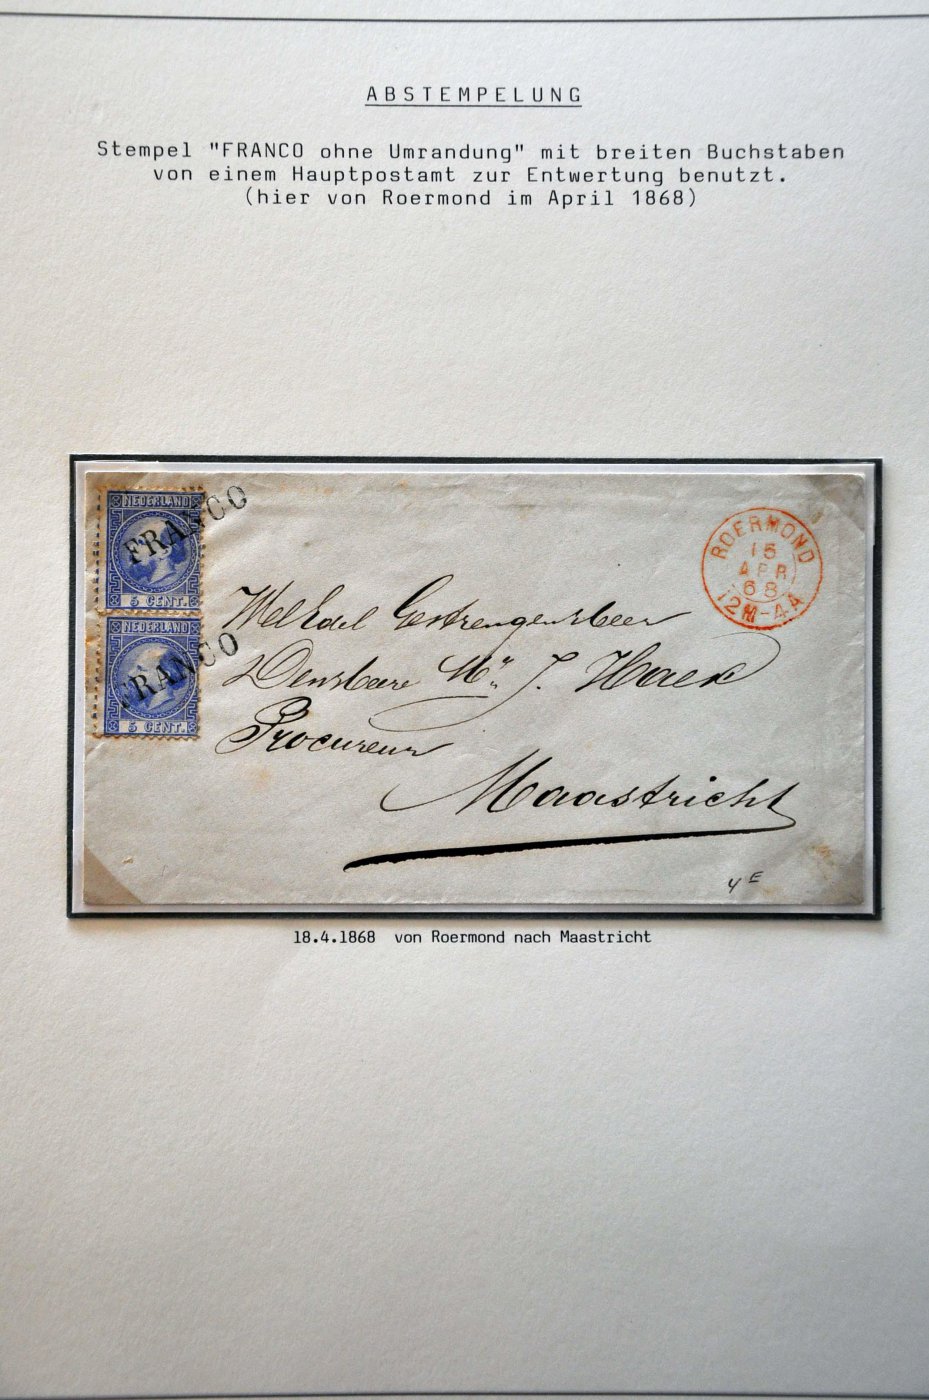 ABSTEMPELUNG
Stempel "FRANCO ohne Umrandung" mit breiten Buchstaben
von einem Hauptpostamt zur Entwertung benutzt.
(hier von Roermond im April 1868)
NEDERLAND
FRANCO
5 CENT.
NEDERLAND
FRANCO
5 CENT.
ROERMOND
15
APR
68
12M-4A
WelEdel Gestrengen Heer
Den Heere Mr. J. Haex
Procureur
Maastricht
18.4.1868 von Roermond nach Maastricht